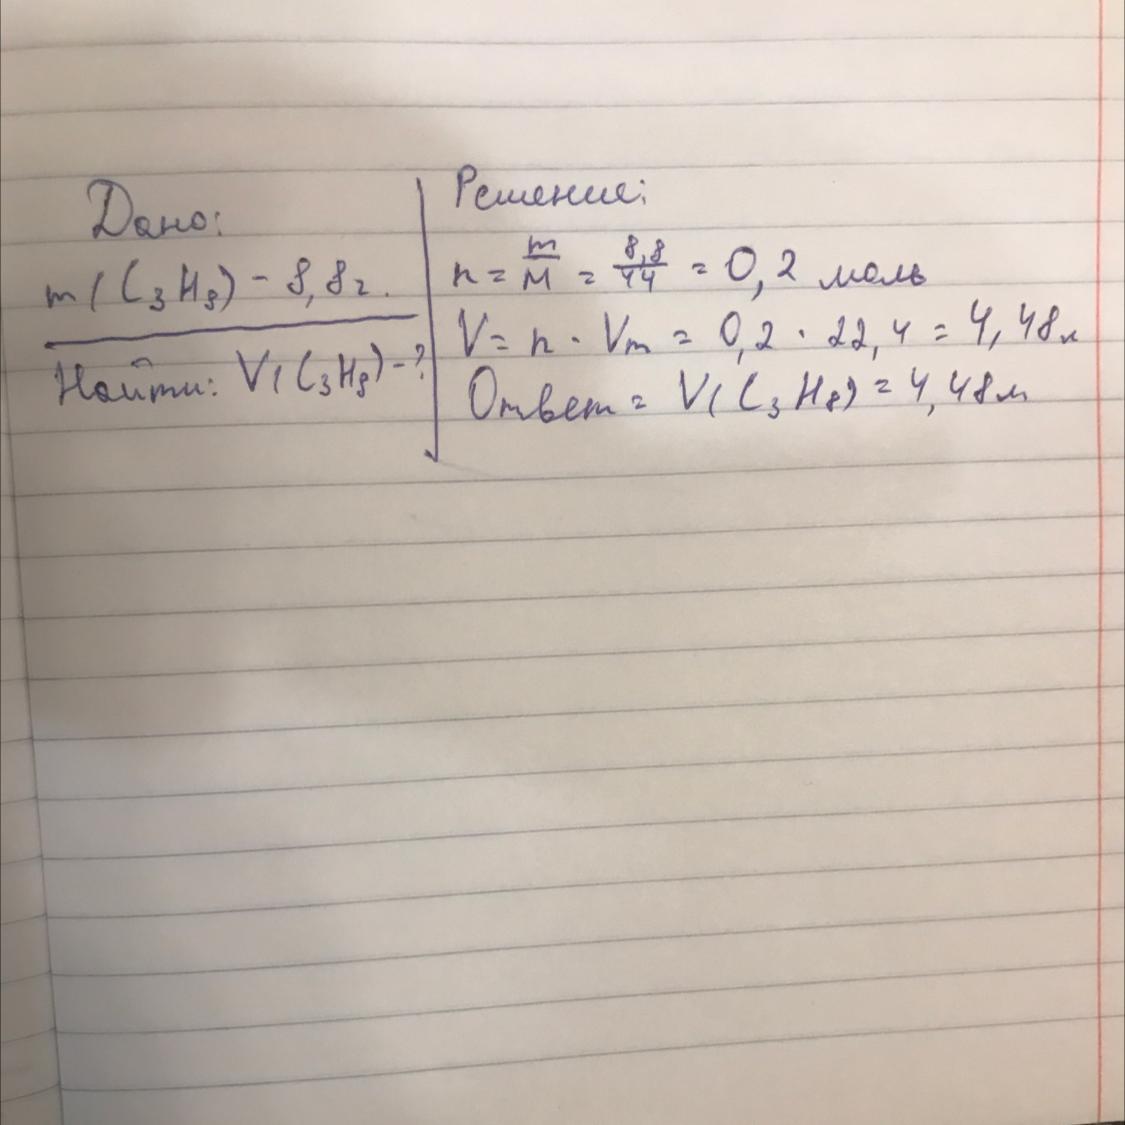 Дано:
m(C₃H₈) - 8,8г.
Найти: V(C₃H₈) - ?
Решение:
n = m/M = 8,8/44 = 0,2 моль
V = n · Vm = 0,2 · 22,4 = 4,48л
Ответ = V(C₃H₈) = 4,48л